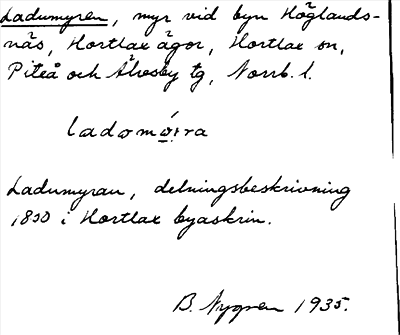 Ladumyren, myr vid byn Höglands-
näs, Hortlax ägor, Hortlax sn,
Piteå och Älvsby tg, Norrb. l.
ladomóira
Ladumyran, delningsbeskrivning
1800 i Hortlax byaskrin.
B. Nygren 1935.